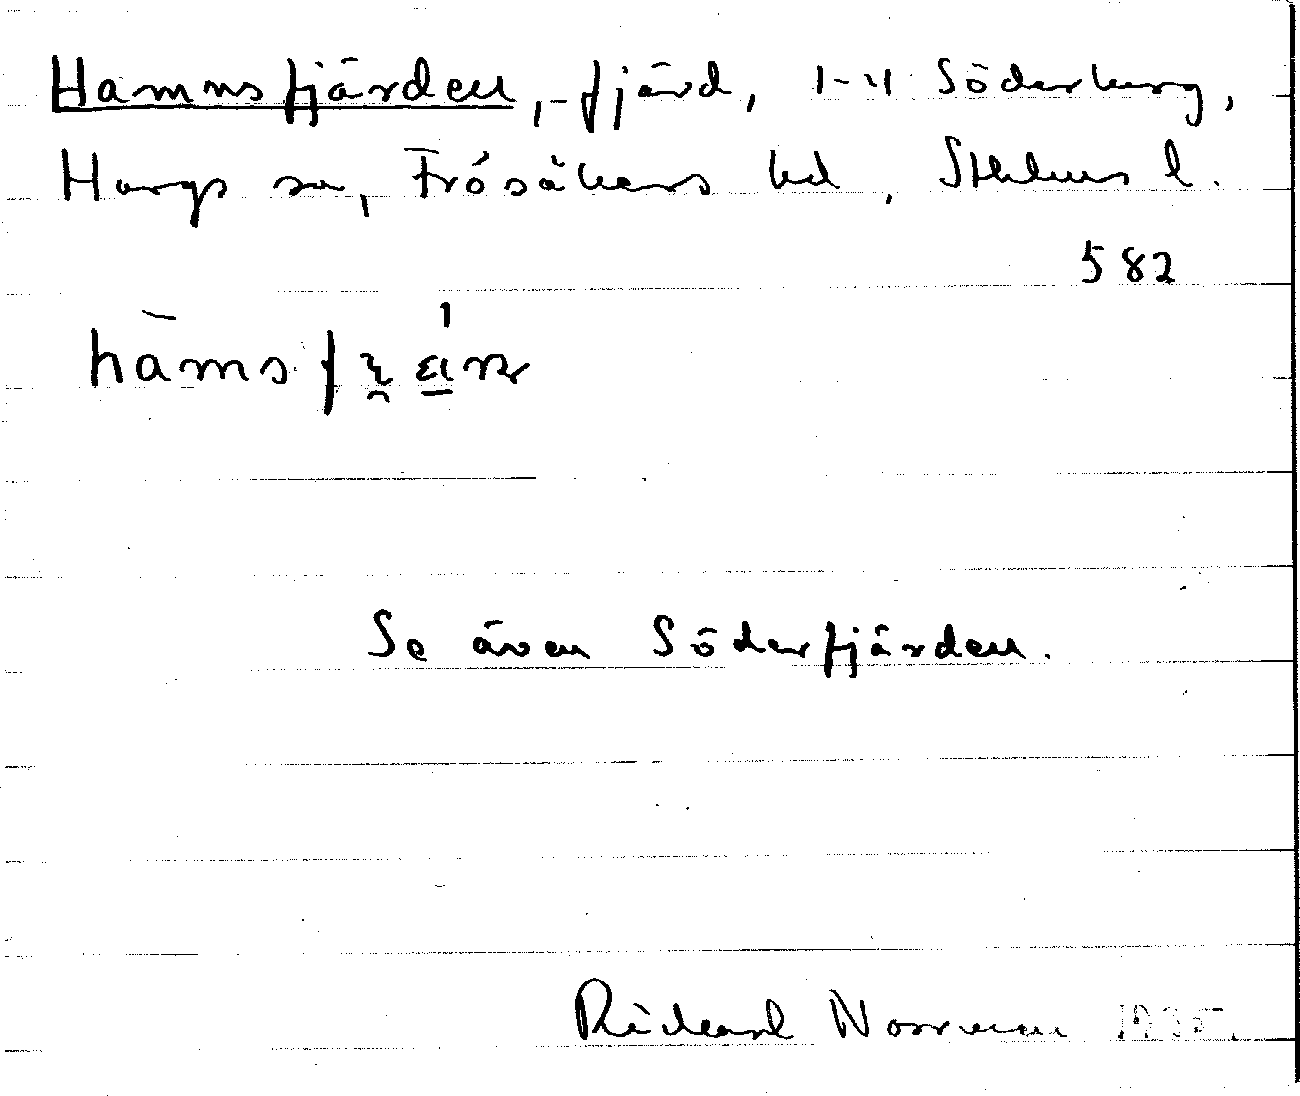 Hamnsfjärden, fjärd, 1-4 Söderburg,
Hargs sn, Frösåkers hd, Sthlms l.
582
Se även Söderfjärden.
Rickard Norrman 1935.